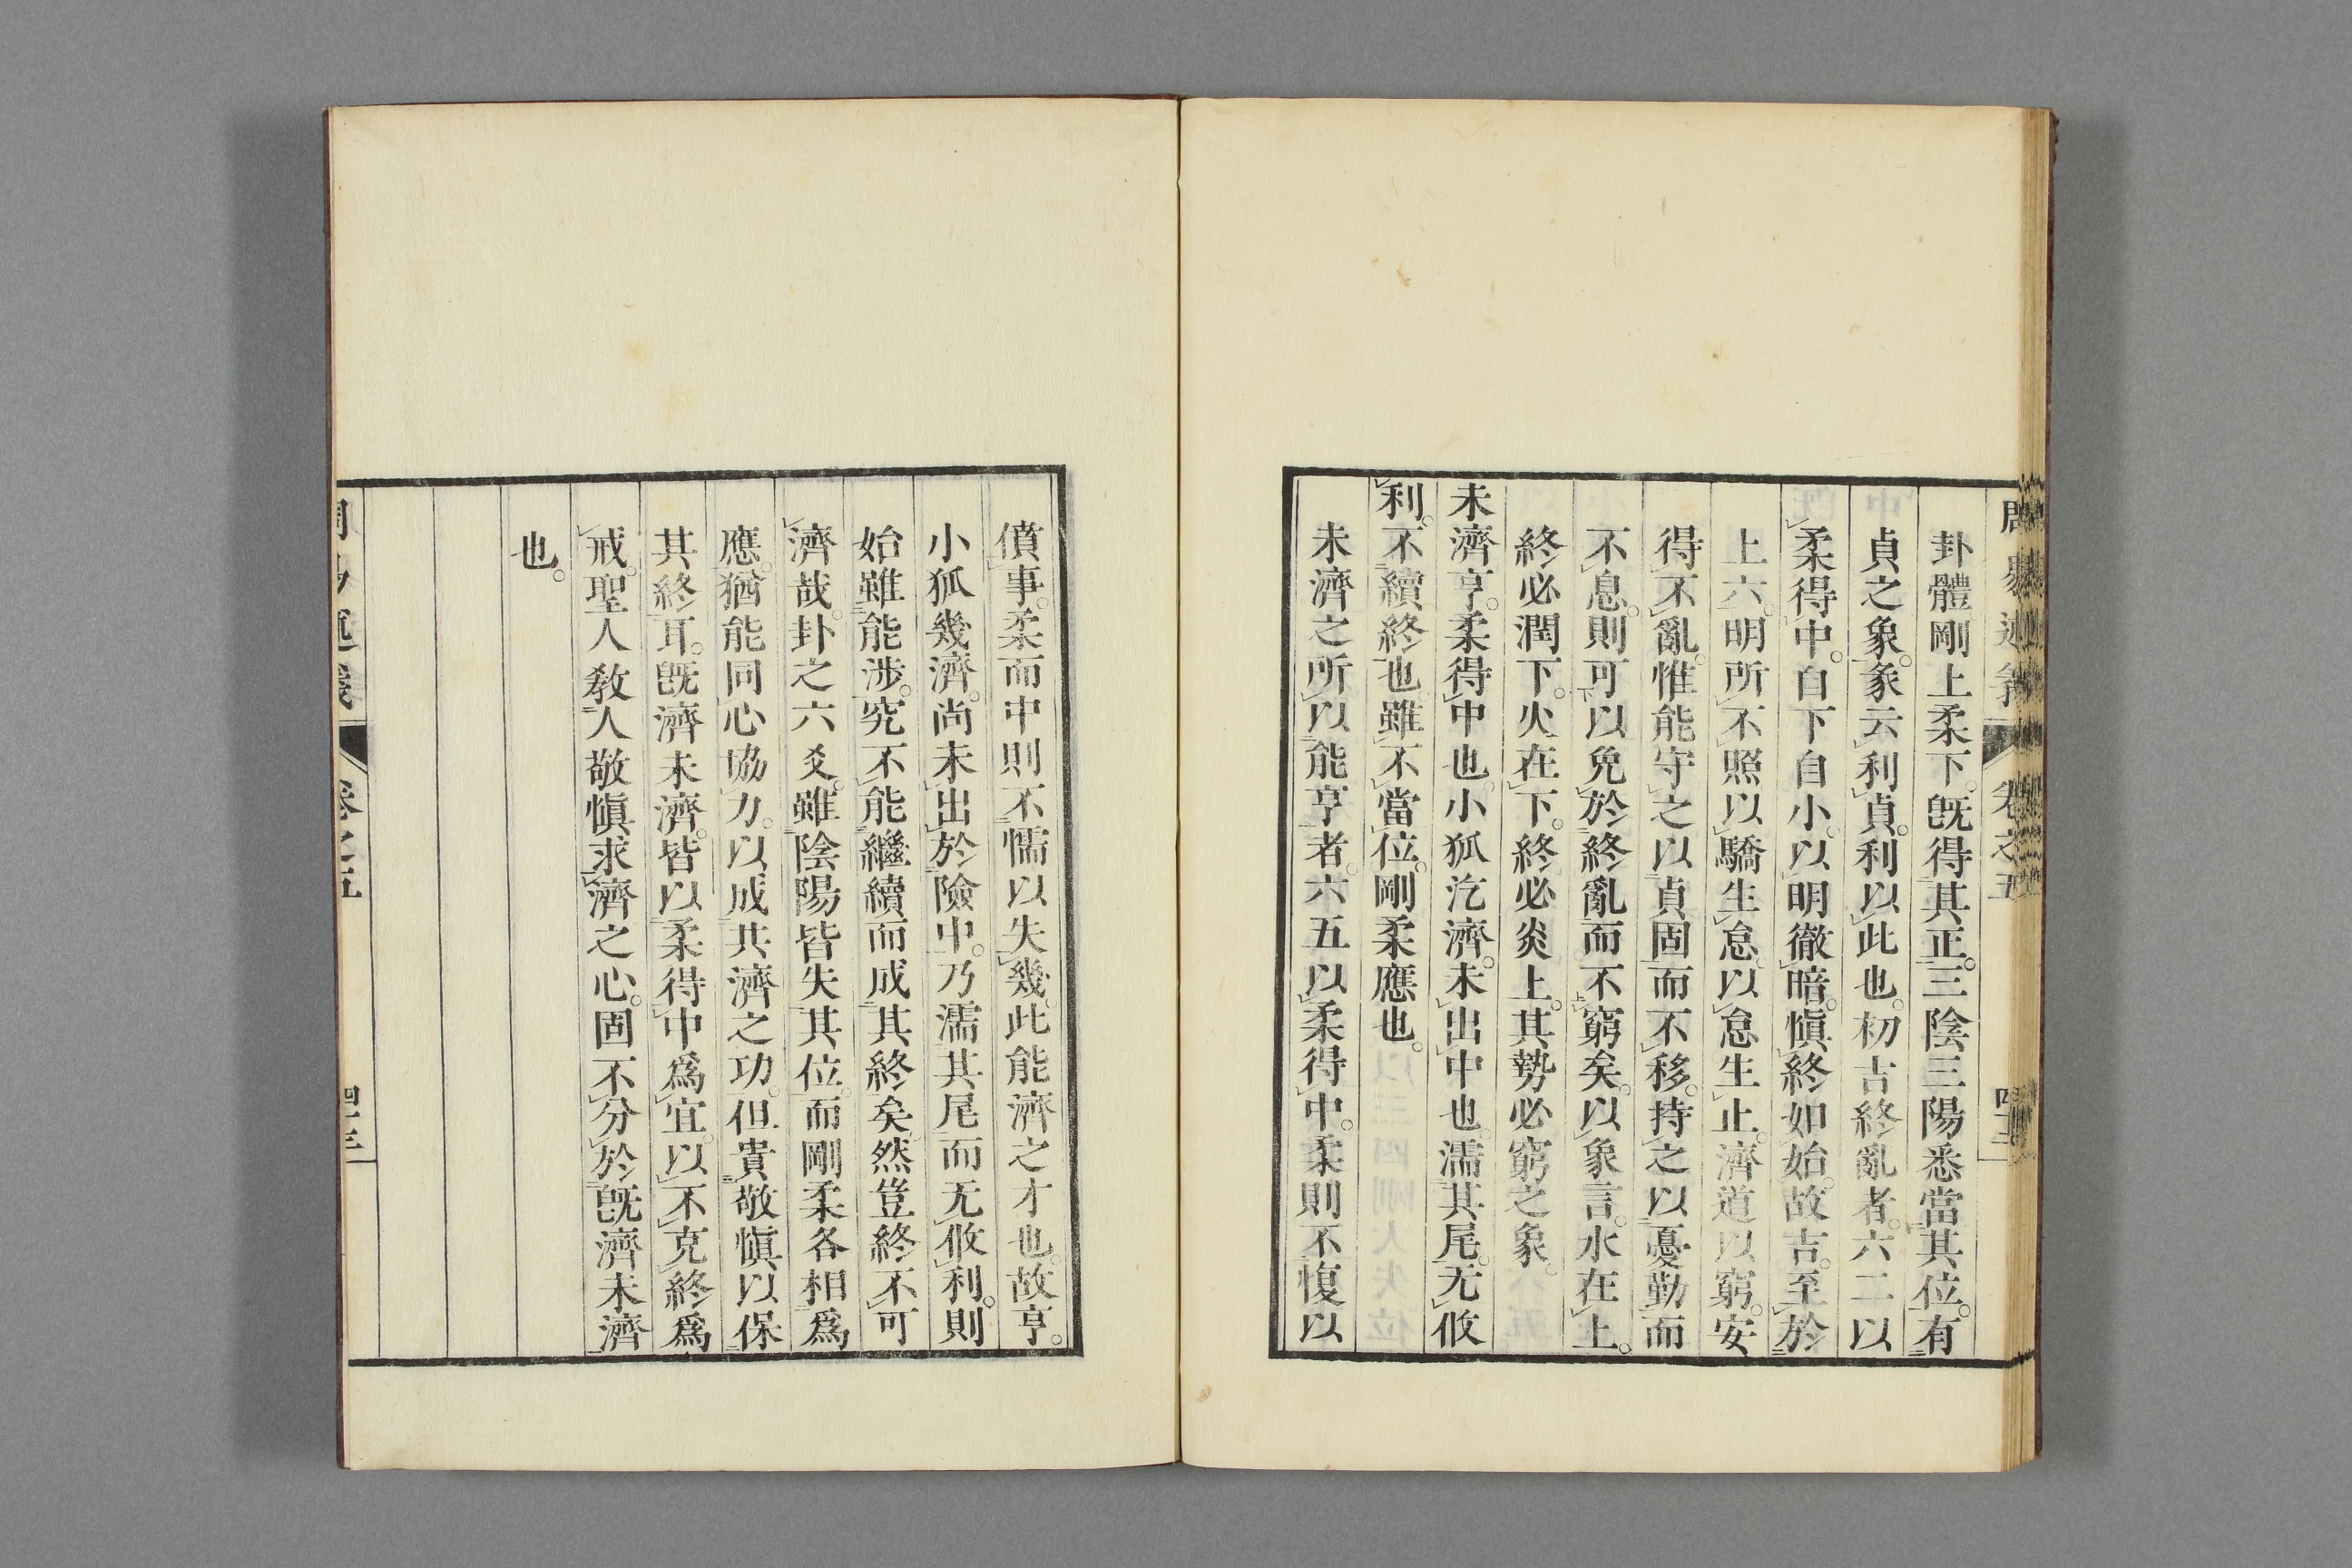 卦體剛上柔下。旣得其正。三陰三陽悉當其位。有
貞之象。彖云利貞。利以此也。初吉終亂者。六二以
柔得中。自下自小。以明徹暗。愼終如始。故吉。至於
上六。明所不照。以驕生怠。以怠生止。濟道以窮。安
得不亂。惟能守之以貞固而不移。持之以憂勤而
不息。則可以免於終亂而不窮矣。以象言。水在上。
終必潤下。火在下。終必炎上。其勢必窮之象。
未濟亨。柔得中也。小狐汔濟。未出中也。濡其尾。无攸
利。不續終也。雖不當位。剛柔應也。
未濟之所以能亨者。六五以柔得中。柔則不愎以
僨事。柔而中則不懦以失幾。此能濟之才也。故亨。
小狐幾濟。尚未出於險中。乃濡其尾而无攸利。則
始雖能涉。究不能繼續而成其終矣。然豈終不可
濟哉。卦之六爻。雖陰陽皆失其位。而剛柔各相爲
應。猶能同心協力。以成其濟之功。但貴敬愼以保
其終耳。旣濟未濟。皆以柔得中爲宜。以不克終爲
戒。聖人敎人敬愼求濟之心。固不分於旣濟未濟
也。
卷之五